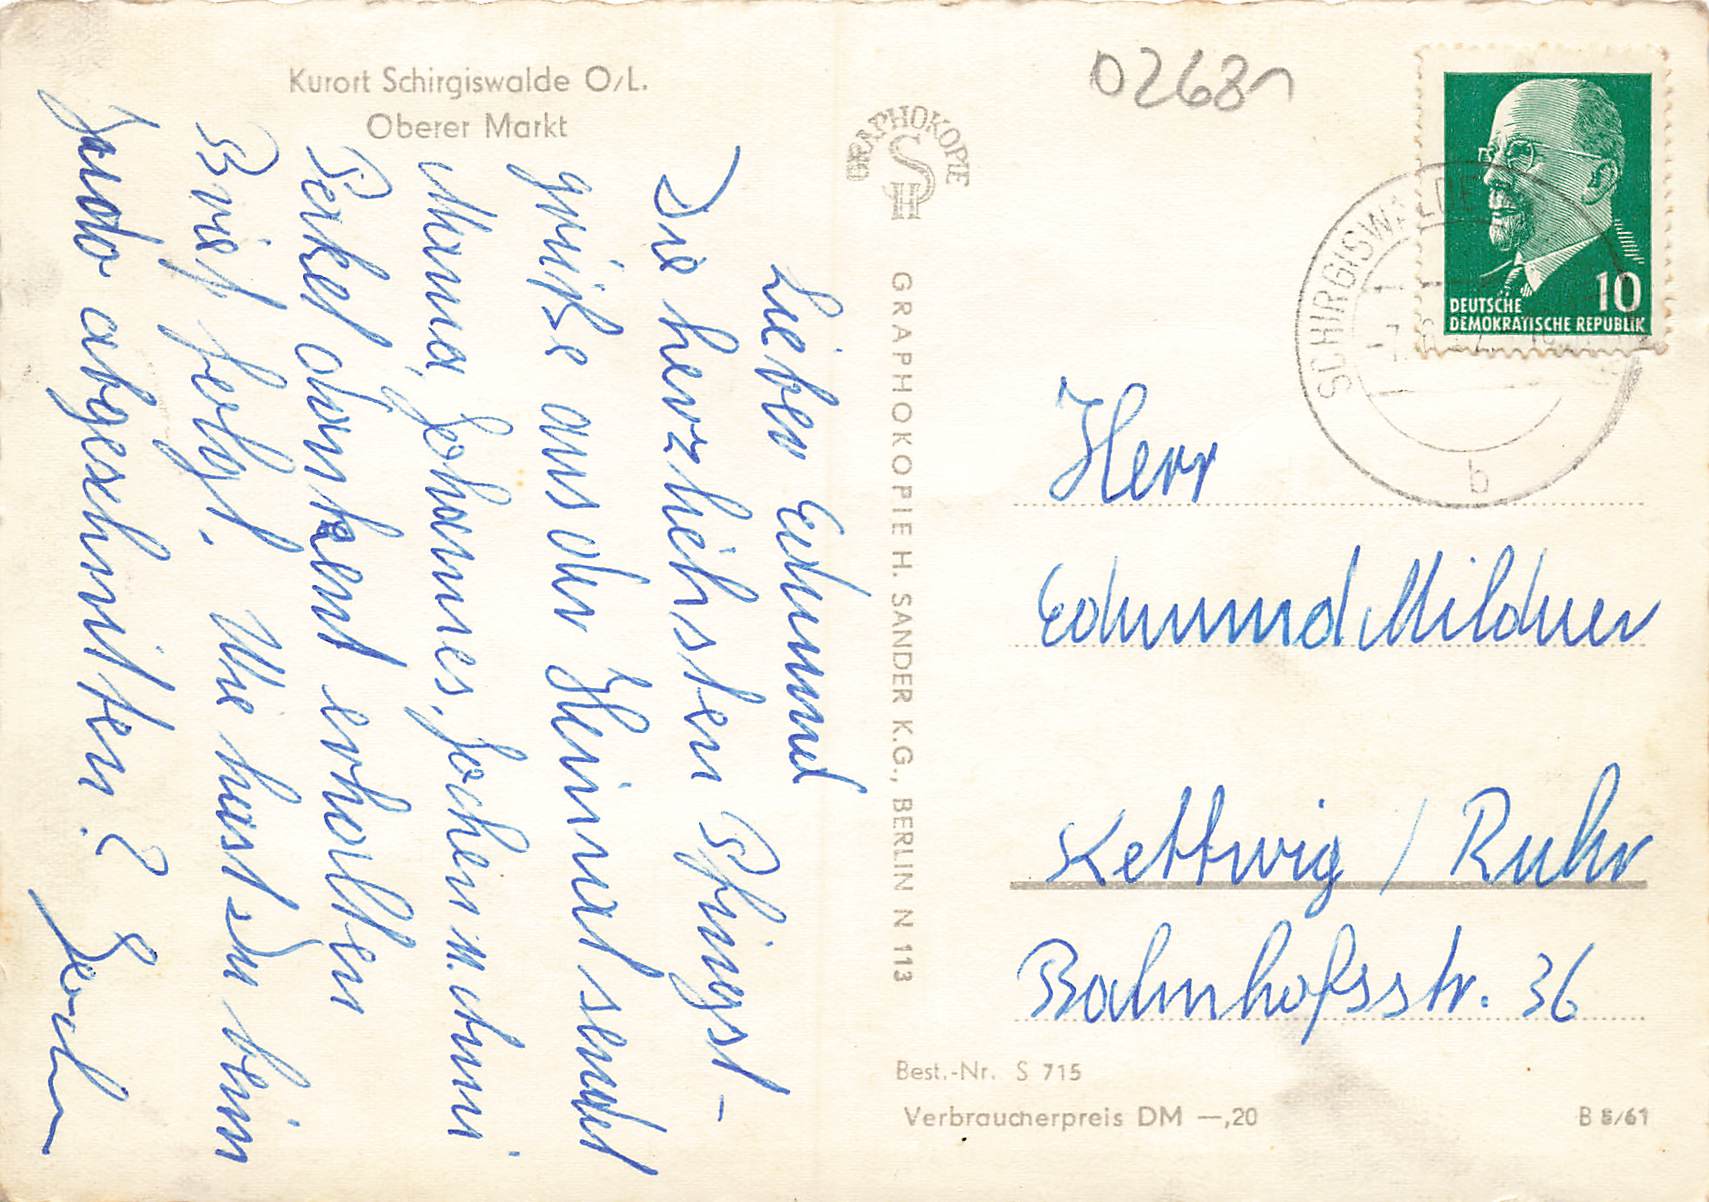 Kurort Schirgiswalde O/L.
Oberer Markt
Lieber Edmund
Die herzlichsten Pfingst-
grüße aus der Heimat sendet
Mama, Johannes, Jochen u. Anni
Perket dankend erhalten
Brief folgt. Wie hast Du beim
Judo abgeschnitten?
GRAPHOKOPIE
HS
GRAPHOKOPIE H. SANDER K.G., BERLIN N 113
02681
DEUTSCHE
DEMOKRATISCHE REPUBLIK
10
SCHIRGISWALDE
b
Herr
Edmund Mildner
Kettwig / Ruhr
Bahnhofsstr. 36
Best.-Nr. S 715
Verbraucherpreis DM —,20
B 5/61